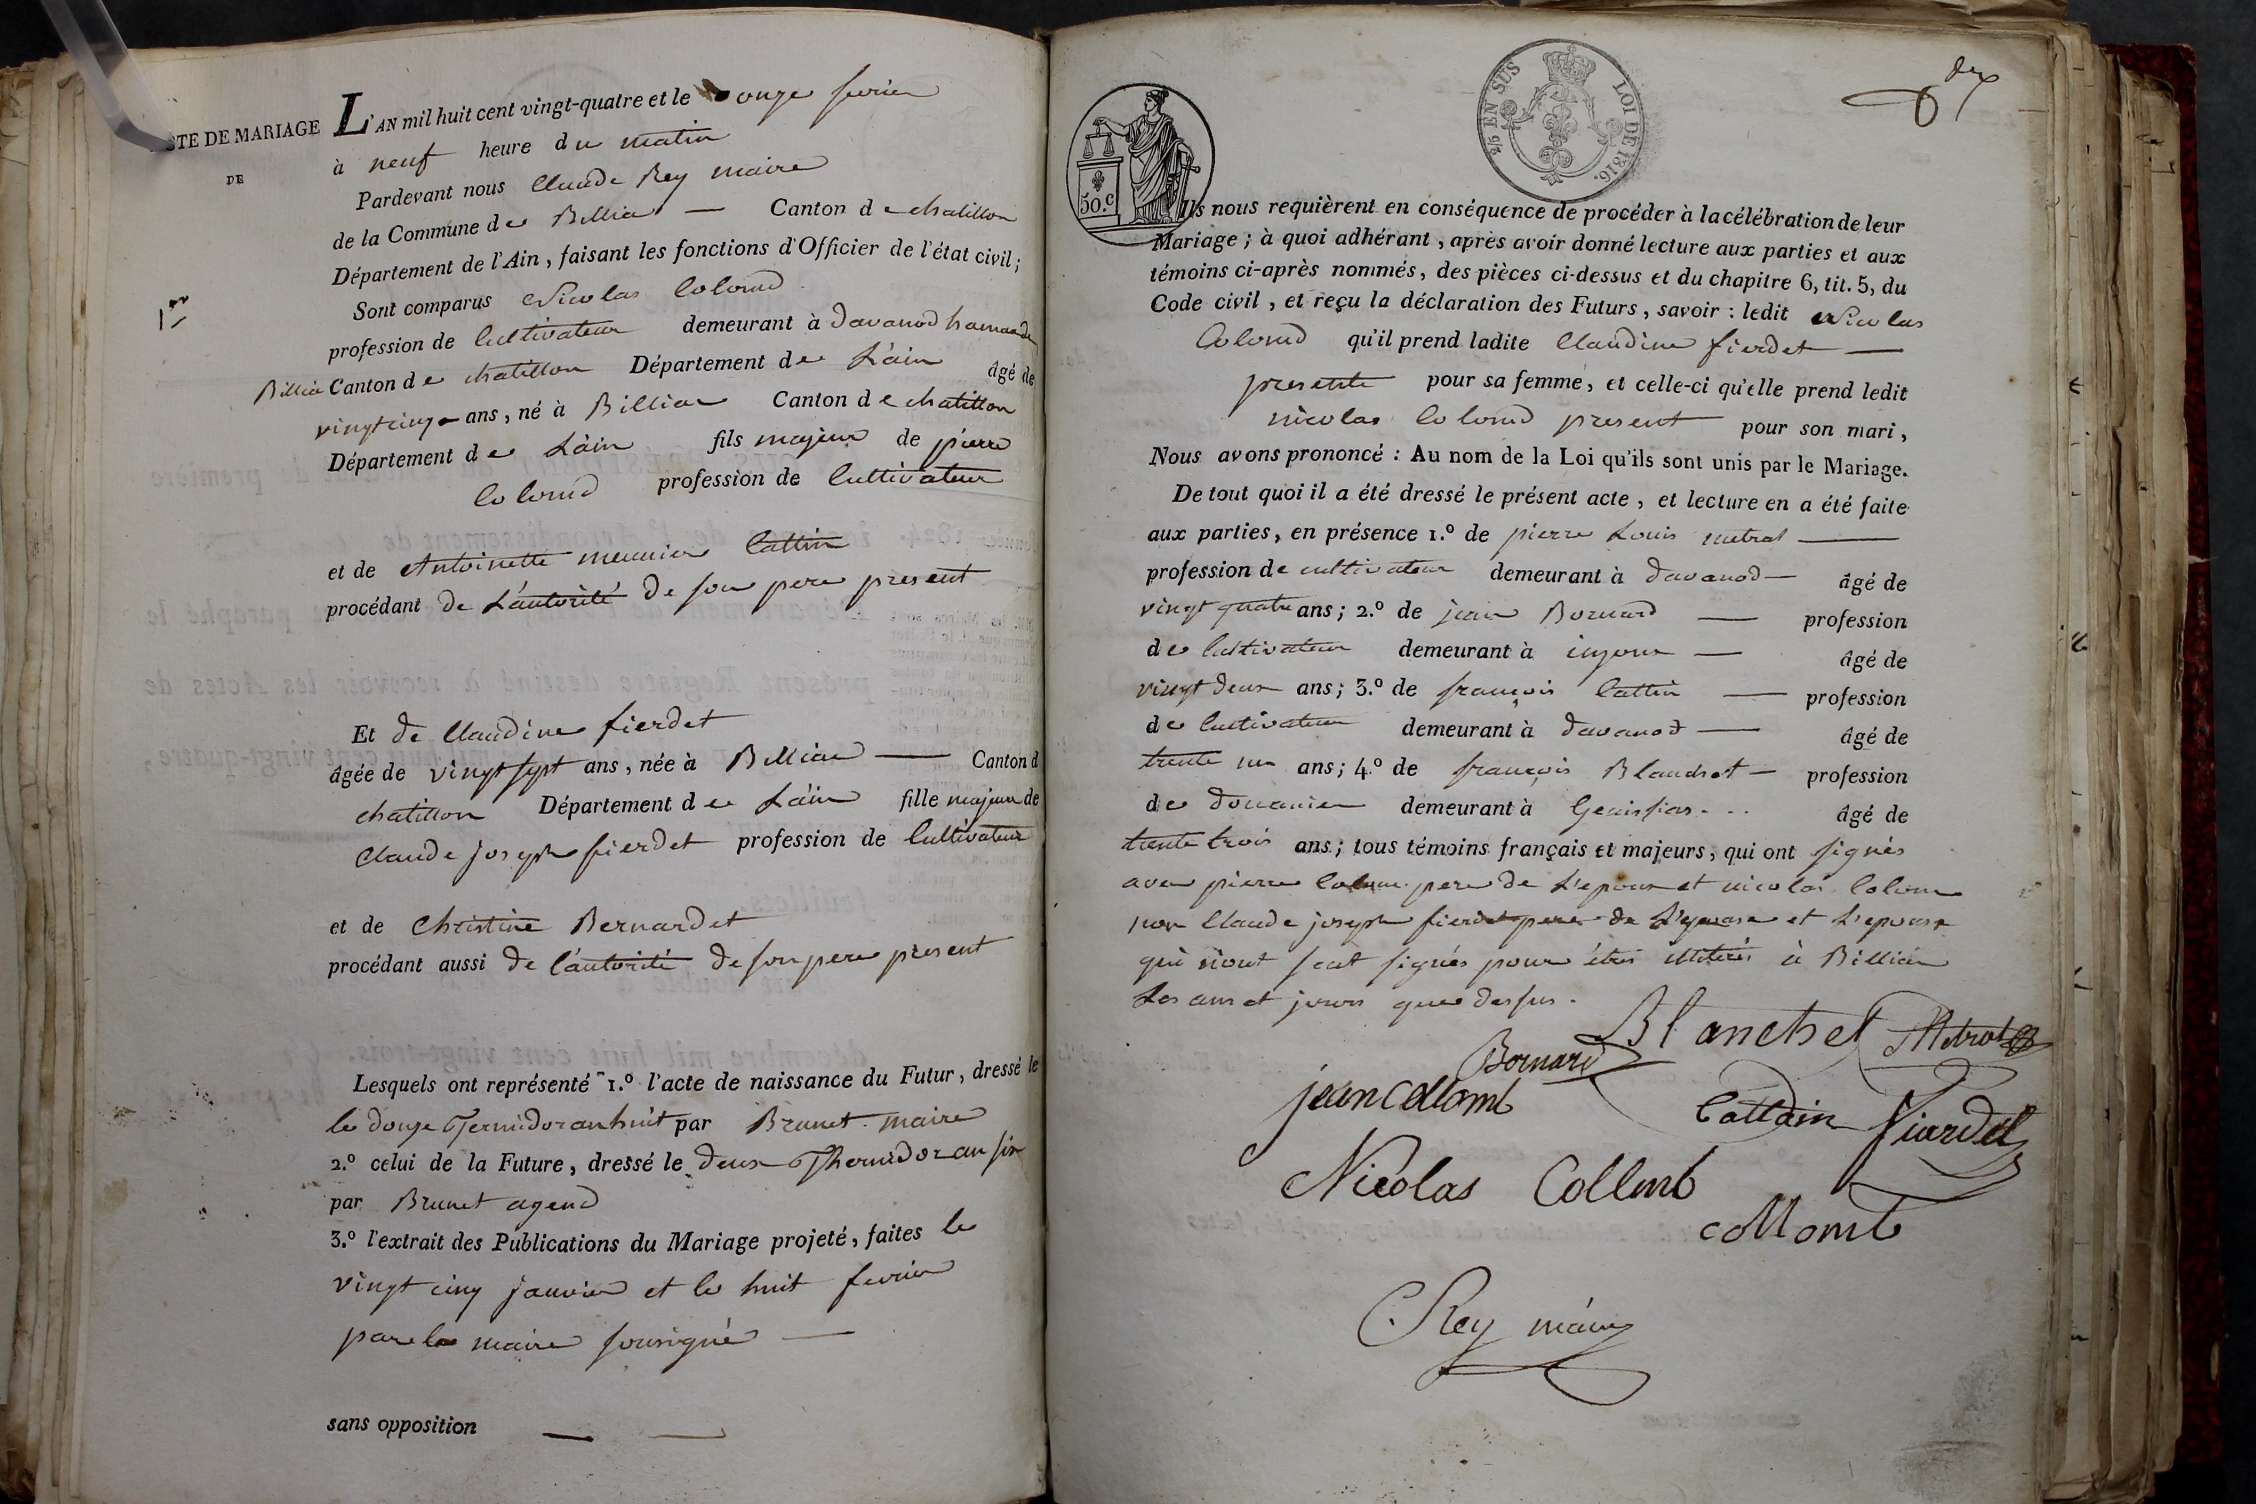 ACTE DE MARIAGE
DE
1er
L'AN mil huit cent vingt-quatre et le onze fevrier
à neuf heure du matin
Pardevant nous Claude Rey maire
de la Commune de Billiat — Canton de chatillon
Département de l'Ain, faisant les fonctions d'Officier de l'état civil;
Sont comparus Nicolas Colomd
profession de Cultivateur demeurant à davanod hameau de
Billia Canton de chatillon Département de L'ain âgé de
vingt cinq ans, né à Billiat Canton de chatillon
Département de L'ain fils majeur de pierre
Colomd profession de Cultivateur
et de Antoinette meunier Cattin
procédant de L'autorité de son pere present
Et de Claudine fierdet
âgée de vingt sept ans, née à Billiat — Canton d
chatillon Département de L'ain fille majeure de
Claude joseph fierdet profession de Cultivateur
et de Christine Bernardet
procédant aussi de l'autorité de son pere present
Lesquels ont représenté 1.º l'acte de naissance du Futur, dressé le
le douze Termidor an huit par Brunet maire
2.º celui de la Future, dressé le deux Thermidor an six
par Brunet agend
3.º l'extrait des Publications du Mariage projeté, faites le
vingt cinq janvier et le huit fevrier
par le maire sousigné —
sans opposition — —
50.c
2/5 EN SUS
LOI DE 1816.
Ils nous requièrent en conséquence de procéder à la célébration de leur
Mariage; à quoi adhérant, après avoir donné lecture aux parties et aux
témoins ci-après nommés, des pièces ci-dessus et du chapitre 6, tit. 5, du
Code civil, et reçu la déclaration des Futurs, savoir: ledit Nicolas
Colomd qu'il prend ladite Claudine fierdet —
presente pour sa femme, et celle-ci qu'elle prend ledit
nicolas Colomd present pour son mari,
Nous avons prononcé: Au nom de la Loi qu'ils sont unis par le Mariage.
De tout quoi il a été dressé le présent acte, et lecture en a été faite
aux parties, en présence 1.º de pierre Louis metral —
profession de cultivateur demeurant à davanod — âgé de
vingt quatre ans; 2.º de jean Bornard — profession
de Cultivateur demeurant à injoux — âgé de
vingt deux ans; 3.º de françois Cattin — profession
de Cultivateur demeurant à davanod — âgé de
trente un ans; 4.º de françois Blanchet — profession
de douanier demeurant à Genissiat âgé de
trente trois ans; tous témoins français et majeurs, qui ont signés
avec pierre Colomd pere de L'epoux et nicolas Colomd
non Claude joseph fierdet pere de L'epouse et L'epouse
qui n'ont scut signés pour étres illiterés à Billiat
Les ans et jours que dessus.
Blanchet Metral
Bornard
jean Collomb Cattain Fiardet
Nicolas Collomb
collomb
Rey maire